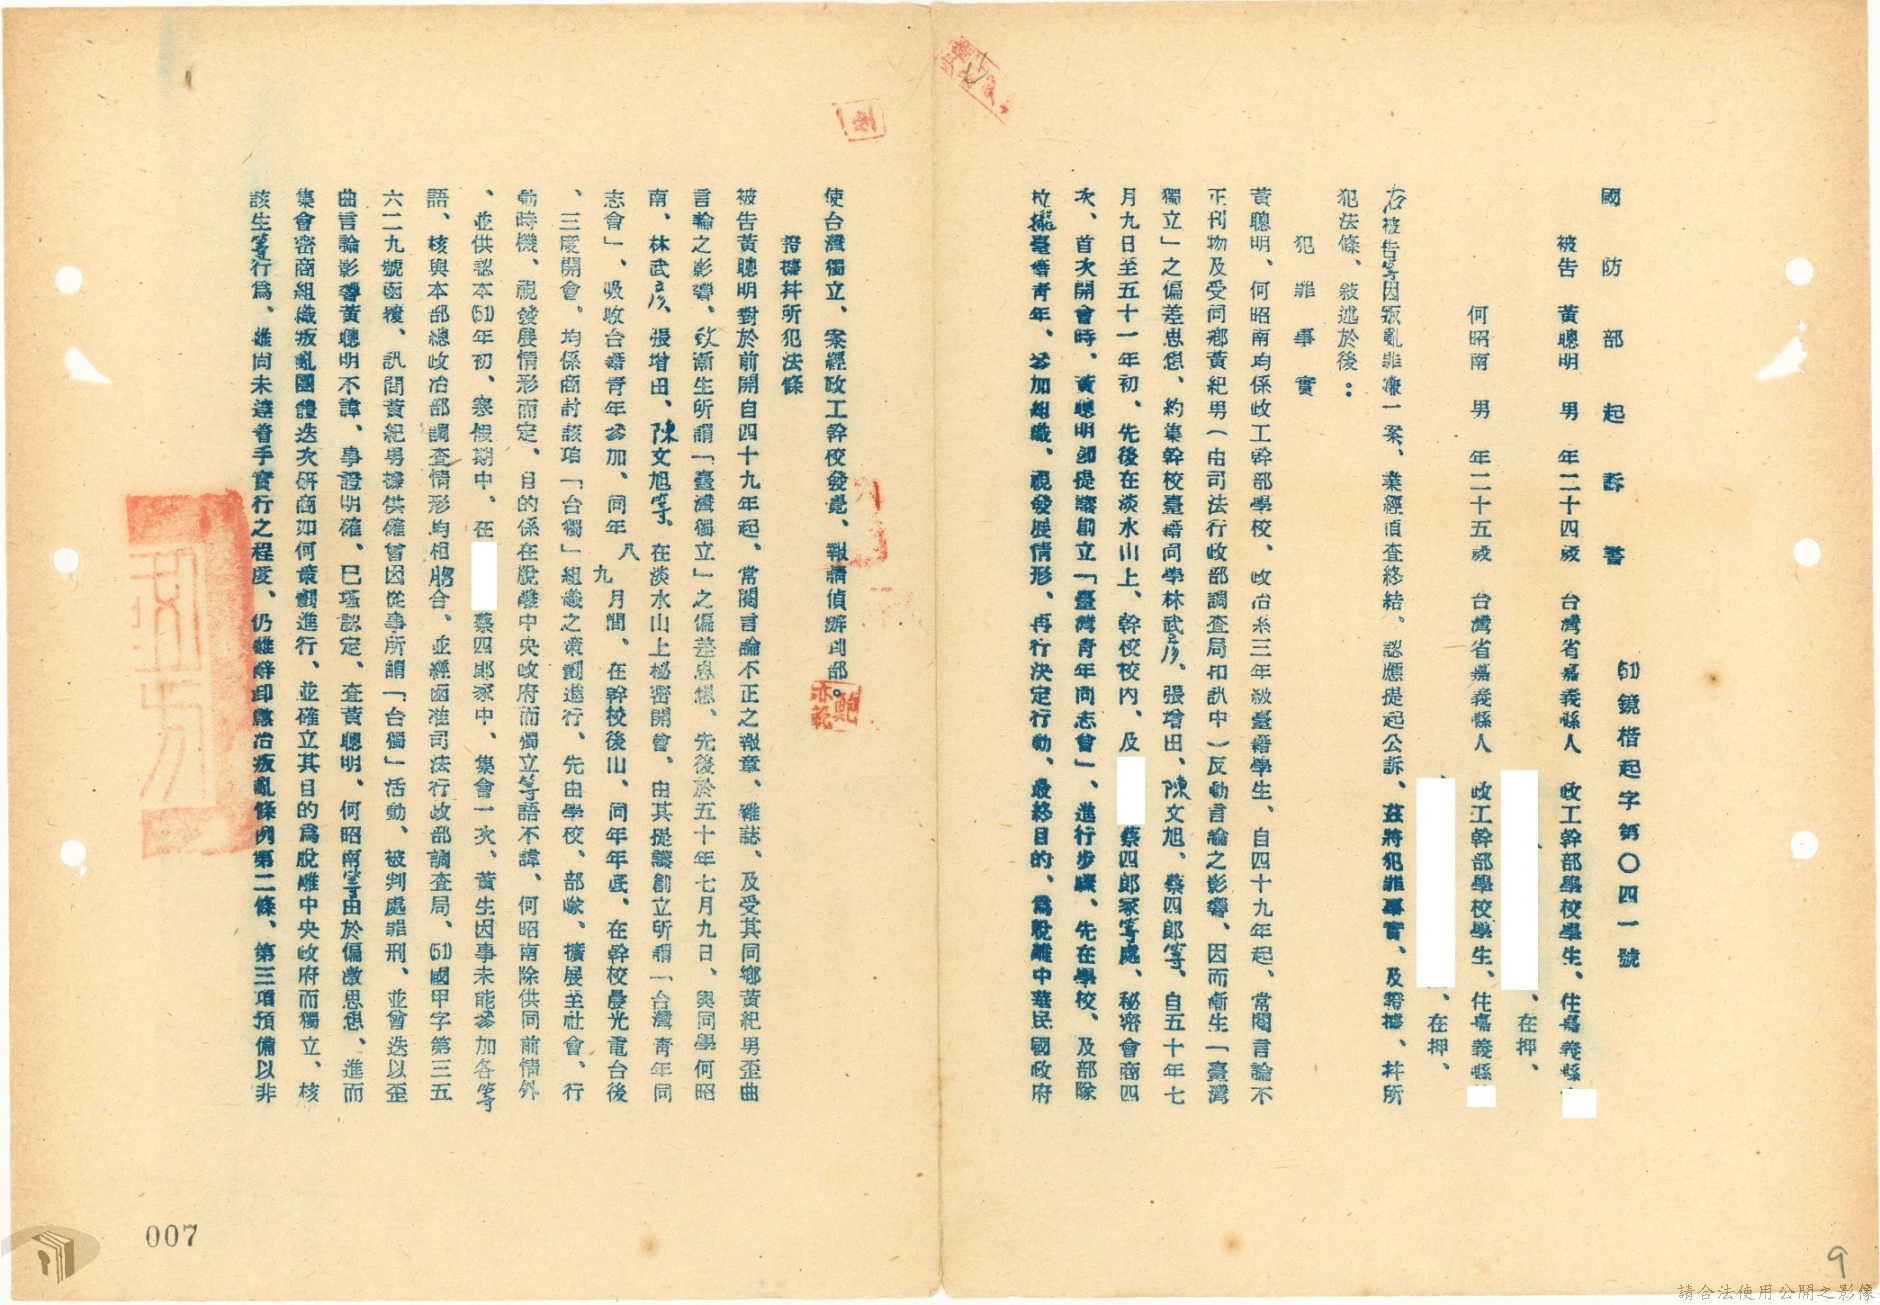 國防部起訴書
(51)鏡楷起字第〇四一號
被告 黃聰明 男 年二十四歲 台灣省嘉義縣人 政工幹部學校學生、住嘉義縣
、在押、
何昭南 男 年二十五歲 台灣省嘉義縣人 政工幹部學校學生、住嘉義縣
、在押、
右被告等因叛亂罪嫌一案、業經偵查終結、認應提起公訴、茲將犯罪事實、及證據、并所
犯法條、敍述於後：
犯罪事實
黃聰明、何昭南均係政工幹部學校、政治系三年級臺籍學生、自四十九年起、常閱言論不
正刊物及受同鄉黃紀男（由司法行政部調查局扣訊中）反動言論之影響、因而漸生「臺灣
獨立」之偏差思想、約集幹校臺籍同學林武彥、張增田、陳文旭、蔡四郎等、自五十年七
月九日至五十一年初、先後在淡水山上、幹校校內、及 蔡四郎家等處、秘密會商四
次、首次開會時、黃聰明卽提議創立「臺灣青年同志會」、進行步驟、先在學校、及部隊
拉攏臺籍青年、參加組織、視發展情形、再行決定行動、最終目的、爲脫離中華民國政府
使台灣獨立、案經政工幹校發覺、報請偵辦到部。
證據并所犯法條
被告黃聰明對於前開自四十九年起、常閱言論不正之報章、雜誌、及受其同鄉黃紀男歪曲
言論之影響、致漸生所謂「臺灣獨立」之偏差思想、先後於五十年七月九日、與同學何昭
南、林武彥、張增田、陳文旭等、在淡水山上秘密開會、由其提議創立所謂「台灣青年同
志會」、吸收台籍青年參加、同年八九月間、在幹校後山、同年年底、在幹校晨光電台後
、三度開會、均係商討該項「台獨」組織之策劃進行、先由學校、部隊、擴展至社會、行
動時機、視發展情形而定、目的係在脫離中央政府而獨立等語不諱、何昭南除供同前情外
、並供認本(51)年初、寒假期中、在 蔡四郎家中、集會一次、黃生因事未能參加各等
語、核與本部總政治部調查情形均相脗合、並經函准司法行政部調查局、(51)國甲字第三五
六二九號函復、訊問黃紀男據供確曾因從事所謂「台獨」活動、被判處罪刑、並曾迭以歪
曲言論影響黃聰明不諱、事證明確、已堪認定、查黃聰明、何昭南等由於偏激思想、進而
集會密商組織叛亂團體迭次硏商如何策劃進行、並確立其目的爲脫離中央政府而獨立、核
該生等行爲、雖尚未達着手實行之程度、仍難辭卸懲治叛亂條例第二條、第三項預備以非
007
9
請合法使用公開之影像